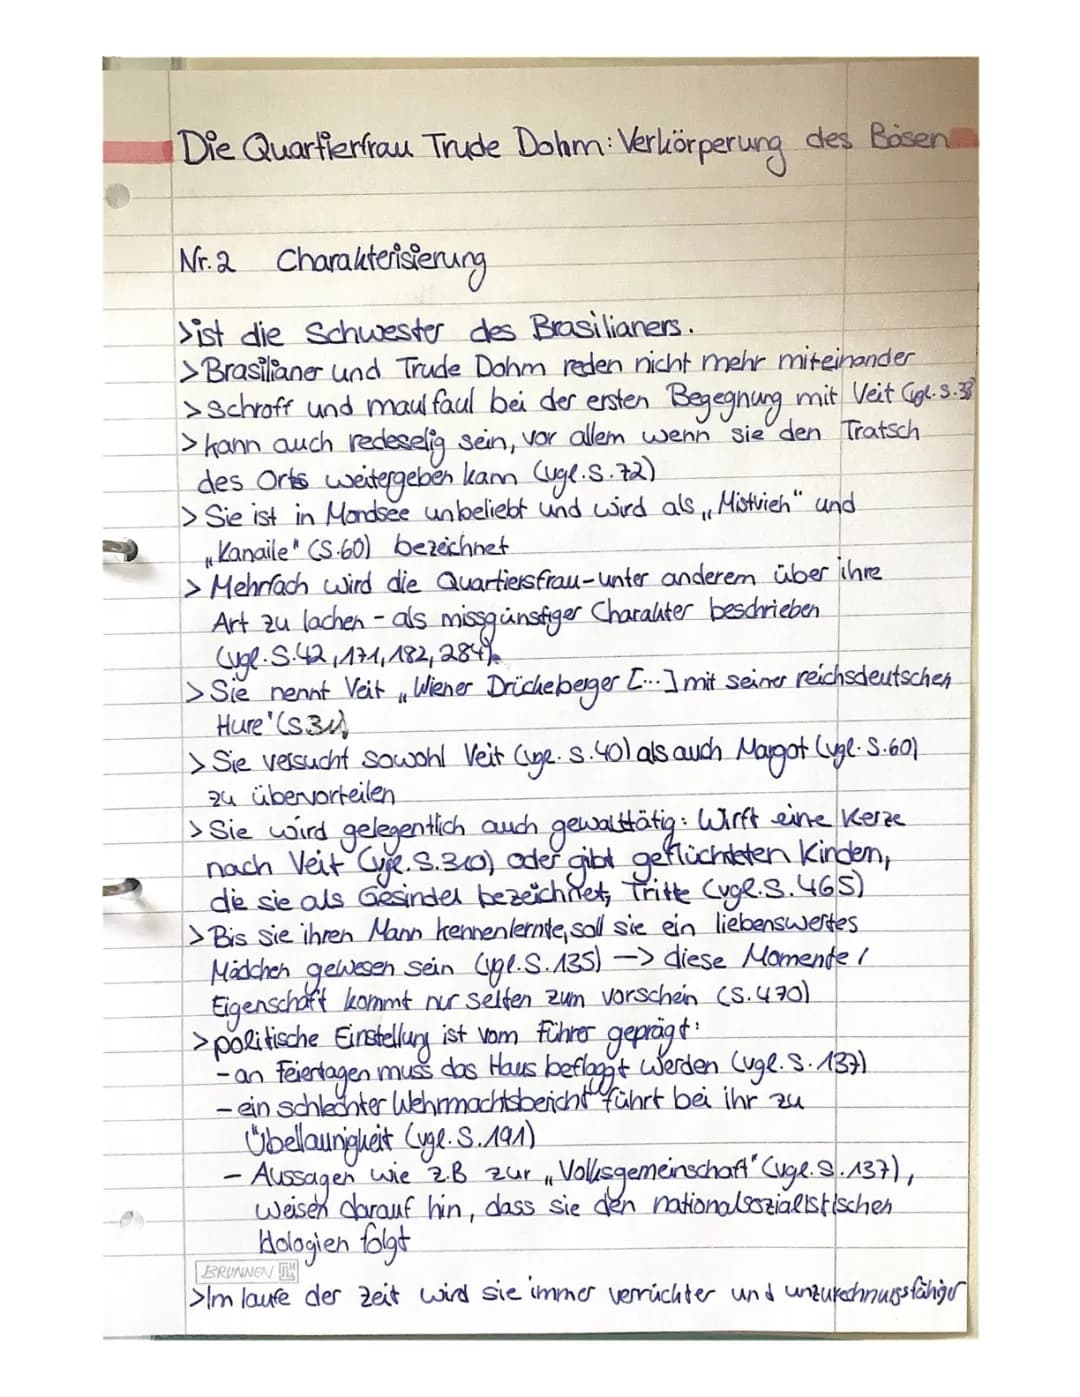 Die Quartierfrau Trude Dohm: Verkörperung des Bösen
Nr. 2 Charakterisierung
>ist die Schwester des Brasilianers.
> Brasilianer und Trude Dohm reden nicht mehr miteinander
> schroff und maulfaul bei der ersten Begegnung mit Veit (vgl. S. 38
> kann auch redeselig sein, vor allem wenn sie den Tratsch
des Orts weitergeben kann (vgl. S. 72)
> Sie ist in Mondsee unbeliebt und wird als „Mistvieh" und
„Kanaile" (S. 60) bezeichnet
> Mehrfach wird die Quartiersfrau - unter anderem über ihre
Art zu lachen - als missgünstiger Charakter beschrieben
(vgl. S. 42, 171, 182, 284).
> Sie nennt Veit „Wiener Drückeberger [...] mit seiner reichsdeutschen
Hure" (S.
> Sie versucht sowohl Veit (vgl. S. 40) als auch Margot (vgl. S. 60)
zu übervorteilen
> Sie wird gelegentlich auch gewalttätig: Wirft eine Kerze
nach Veit (vgl. S. 310) oder gibt geflüchteten Kindern,
die sie als Gesindel bezeichnet, Tritte (vgl. S. 465)
> Bis sie ihren Mann kennenlernte, soll sie ein liebenswertes
Mädchen gewesen sein (vgl. S. 135) -> diese Momente /
Eigenschaft kommt nur selten zum vorschein (S. 470)
> politische Einstellung ist vom Führer geprägt:
- an Feiertagen muss das Haus beflaggt werden (vgl. S. 137)
- ein schlechter Wehrmachtsbericht führt bei ihr zu
Übellaunigkeit (vgl. S. 191)
- Aussagen wie z.B zur „Volksgemeinschaft" (vgl. S. 137),
weisen darauf hin, dass sie den nationalsozialistischen
Idologien folgt
BRUNNEN
>Im laufe der Zeit wird sie immer verrückter und unzurechnungsfähiger